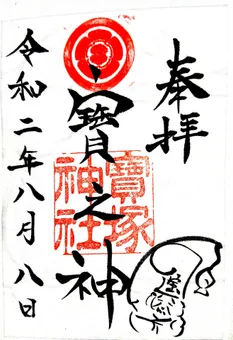 奉拝
寶之神
寶塚
神社
令和二年八月八日